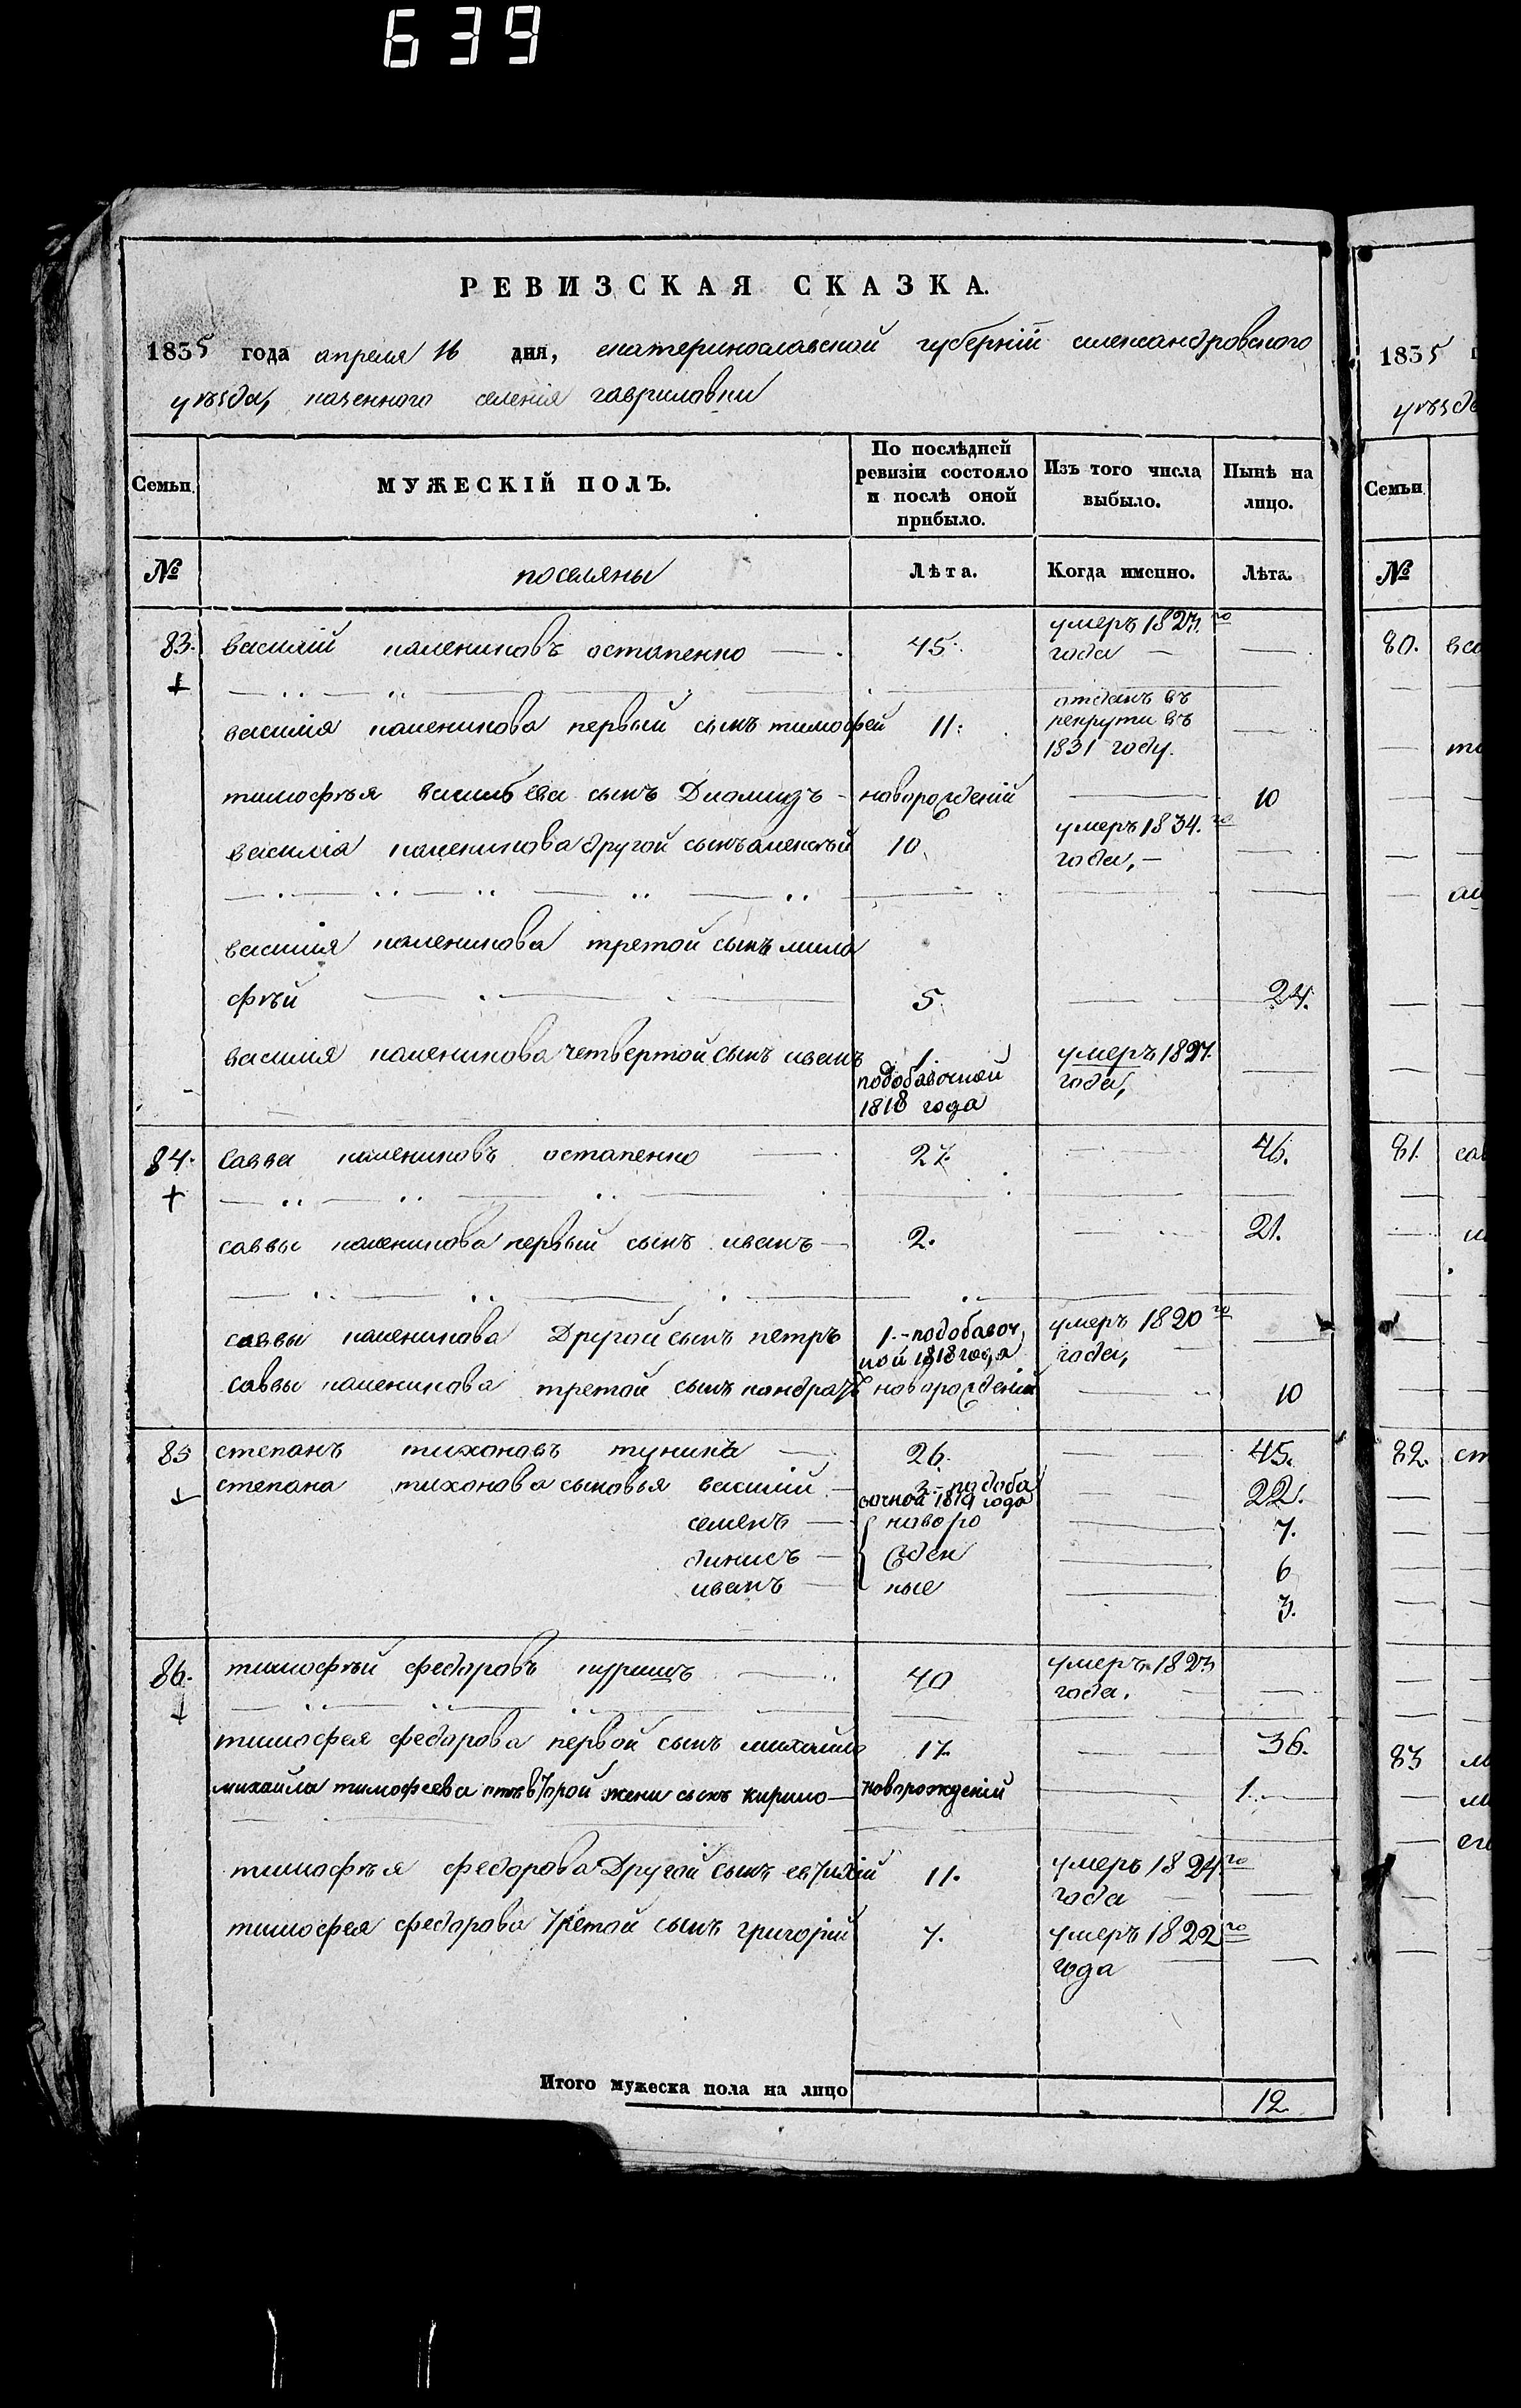 639
РЕВИЗСКАЯ СКАЗКА.
1835 года апреля 16 дня, екатеринославской губернiй александровского
уѣзда, казенного селенiя гавриловки
Семьи.
МУЖЕСКIЙ ПОЛЪ.
По послѣдней ревизiи состояло и послѣ оной прибыло.
Изъ того числа выбыло.
Нынѣ на лицо.
№
поселяны
Лѣта.
Когда именно.
Лѣта.
83. василiй калениковъ остапенко — 45. умеръ 1823. го
года —
василiя каленикова первый сынъ тимофей 11. отданъ въ
рекруты въ
1831 году.
тимофѣя васильева сынъ Диомидъ - новорожденiй — 10
василiя каленикова другой сынъ алексѣй 10. умеръ 1834. го
года, —
василiя каленикова третой сынъ мило
фѣй — 5. — 24.
василiя каленикова четвертой сынъ иванъ 1. умеръ 1827.
подобавочной года,
1818 года
84. савва калениковъ остапенко — 27. — 46.
саввы каленикова первый сынъ иванъ — 2. — 21.
саввы каленикова Другой сынъ петръ 1.-подобавоч умеръ 1820 го
ной 1818 года года,
саввы каленикова третой сынъ кондратъ новорожденiй — 10
85 степанъ тихоновъ — 26. — 45.
степана тихонова сыновья василiй — 3.-подоба — 22.
вочной 1819 года
семенъ — новоро — 7.
динисъ — жден — 6
иванъ — ные — 3.
86. тимофѣй федоровъ — 40 умеръ 1823
года.
тимофея федорова первой сынъ михайло 17. — 36.
михайла тимофеева отъ второй жены сынъ кирило — новорожденiй — 1.
тимофѣя федорова Другой сынъ евтихiй 11. умеръ 1824 го
года
тимофея федорова третой сынъ григорiй 7. умеръ 1822 го
года
Итого мужеска пола на лицо 12
1835
уѣзд
Семьи
№
80.
81.
82.
83